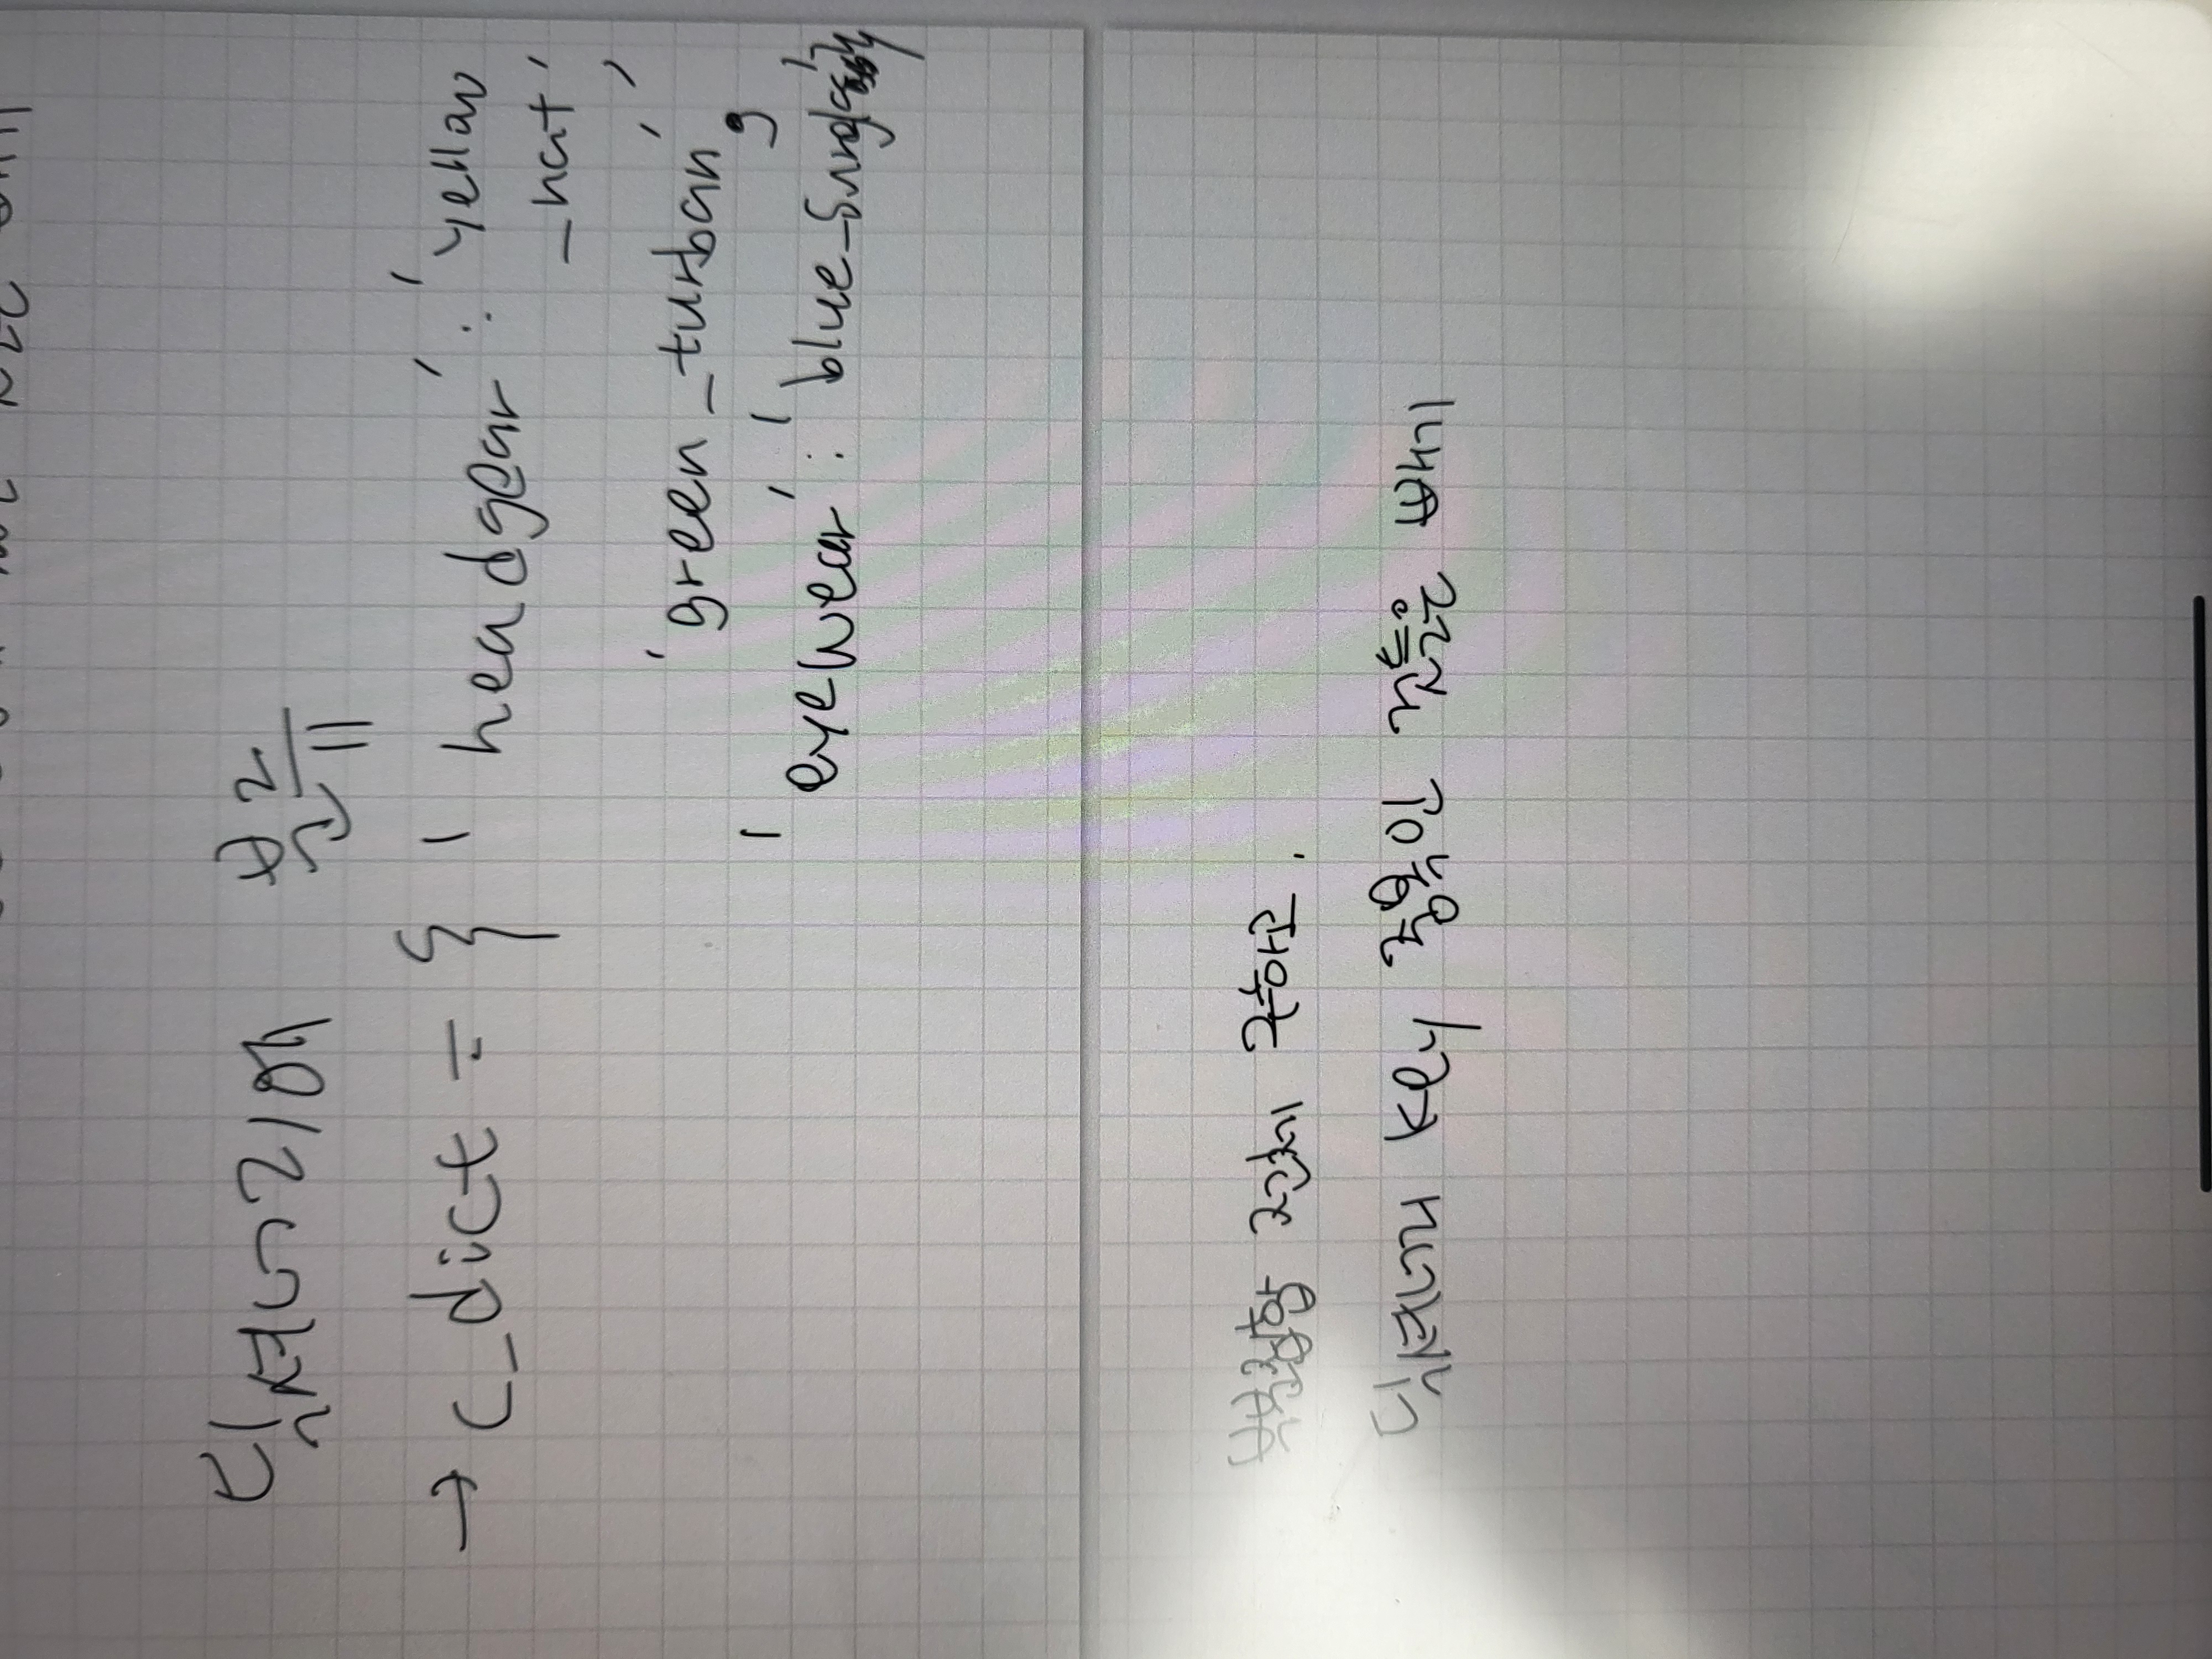 딕셔너리에 분류
→ c_dict = { 'headgear' : 'yellow
_hat',
'green_turban',
'eyewear' : 'blue_sunglass'}
부분집합 전체 구하고.
딕셔너리 key 중복인 것들은 빼기